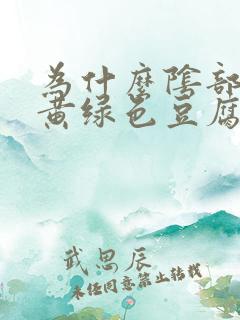 為什麼陰部
黃绿色豆腐
武思辰
未经同意禁止转载